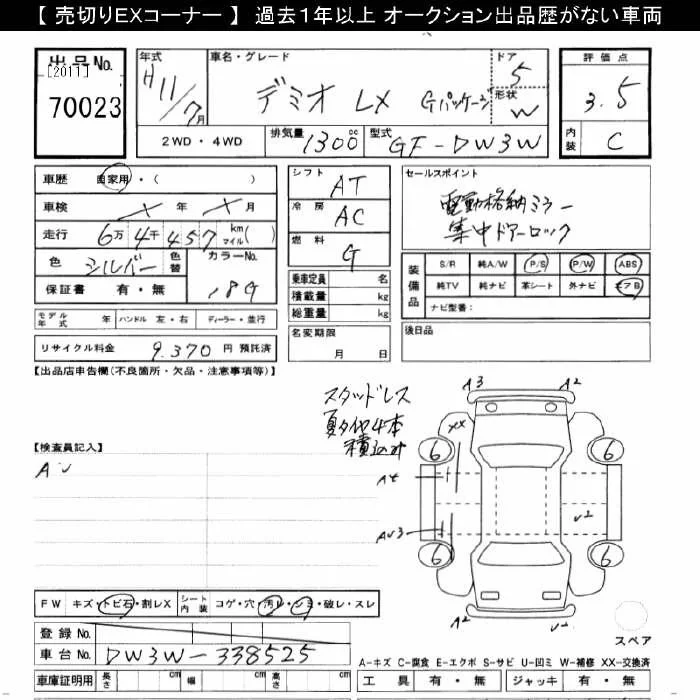 【 売切りEXコーナー 】 過去1年以上 オークション出品歴がない車両
出品No.
[2011]
70023
年式
H11/7月
車名・グレード
デミオ LX Gパッケージ
ドア
5
形状
W
2WD・4WD
排気量
1300cc
型式
GF-DW3W
評価点
3.5
内装
C
車歴 自家用・( )
車検 年 月
走行 6万 4千 457 km マイル( )
色 シルバー 色替 カラーNo.
保証書 有・無 18G
モデル年式 年 ハンドル 左・右 ディーラー・並行
リサイクル料金 9,370 円 預託済
シフト AT
冷房 AC
燃料 G
乗車定員 名
積載量 kg
総重量 kg
名変期限
月 日
セールスポイント
電動格納ミラー
集中ドアーロック
装備品
S/R 純A/W P/S P/W ABS
純TV 純ナビ 革シート 外ナビ エアB
ナビ型番:
後日品
【出品店申告欄(不良箇所・欠品・注意事項等)】
スタッドレス
夏タイヤ4本
積込み
【検査員記入】
A
A3 A2
XX
6 6
A4
U2
AU3
6 6
A2 U2
スペア
FW キズ・トビ石・割レX シート内装 コゲ・穴・汚レ・シミ・破レ・スレ
登録No.
車台No. DW3W-338525
車庫証明用 長さ cm 幅 cm 高さ cm
A-キズ C-腐食 E-エクボ S-サビ U-凹ミ W-補修 XX-交換済
工具 有・無 ジャッキ 有・無